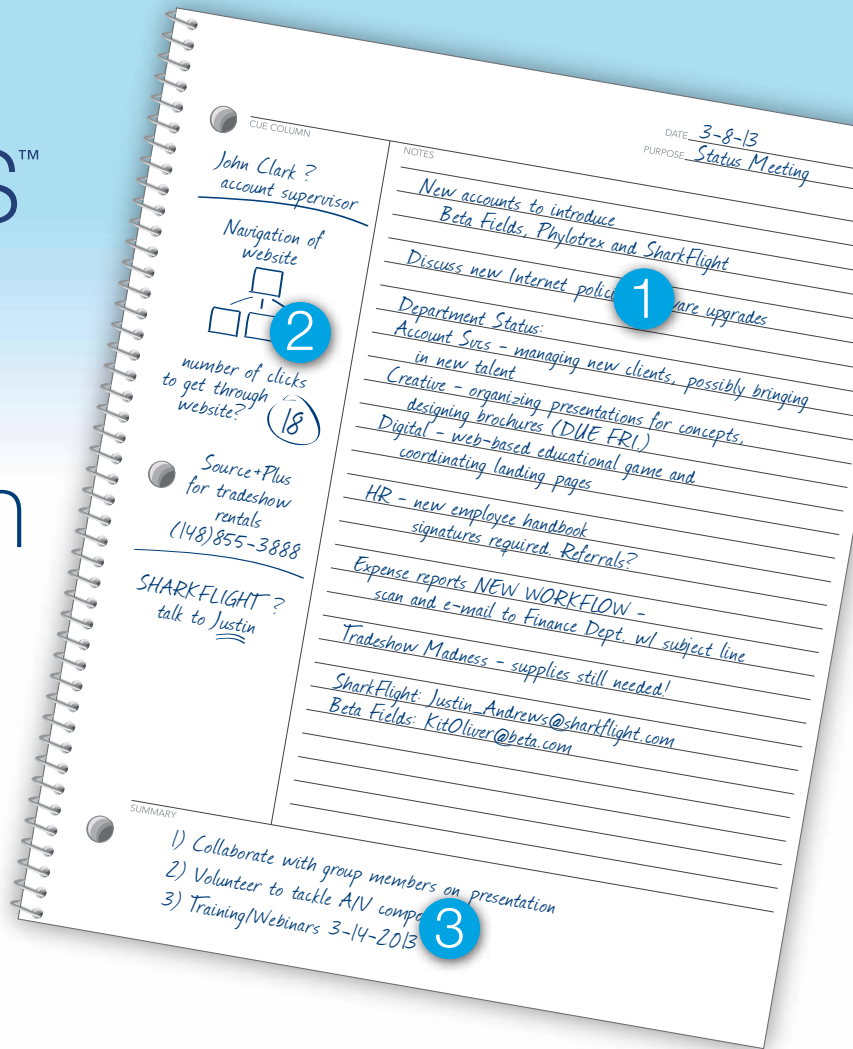 S™
n
DATE 3-8-13
PURPOSE Status Meeting
CUE COLUMN
John Clark ?
account supervisor
Navigation of
website
2
number of clicks
to get through
website? 18
Source+Plus
for tradeshow
rentals
(148)855-3888
SHARKFLIGHT ?
talk to Justin
NOTES
New accounts to introduce
Beta Fields, Phylotrex and SharkFlight
Discuss new Internet upgrades
1
Department Status:
Account Svcs - managing new clients, possibly bringing
in new talent
Creative - organizing presentations for concepts,
designing brochures (DUE FRI.)
Digital - web-based educational game and
coordinating landing pages
HR - new employee handbook
signatures required. Referrals?
Expense reports NEW WORKFLOW -
scan and e-mail to Finance Dept. w/ subject line
Tradeshow Madness - supplies still needed!
SharkFlight: Justin_Andrews@sharkflight.com
Beta Fields: KitOliver@beta.com
SUMMARY
1) Collaborate with group members on presentation
2) Volunteer to tackle A/V
3) Training/Webinars 3-14-2013
3